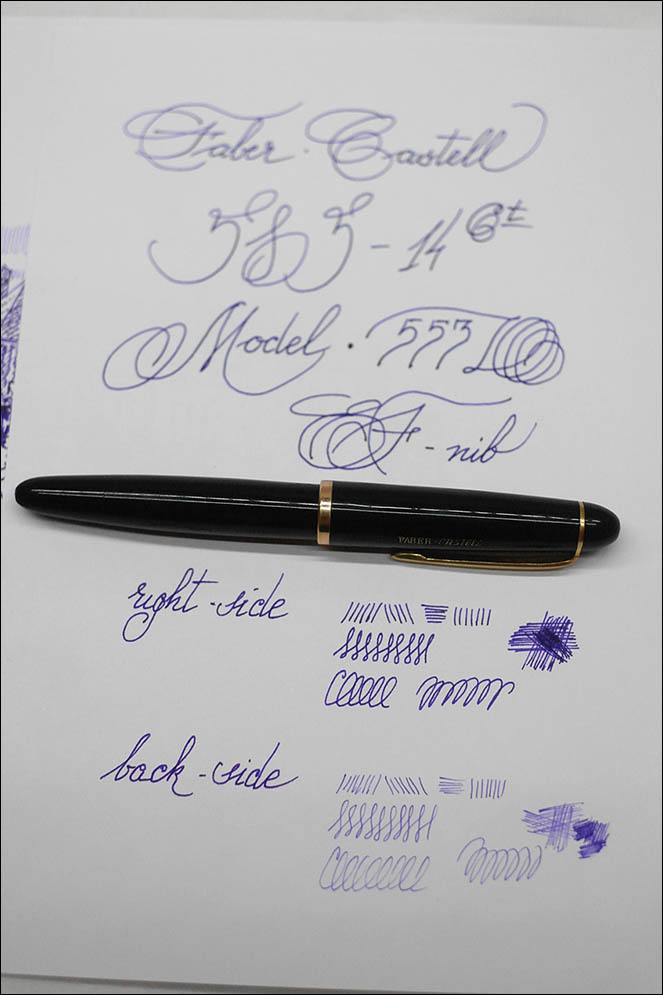 Faber-Castell
585 - 14 Ct
Model • 553
EF - nib
FABER-CASTELL
right-side
back-side